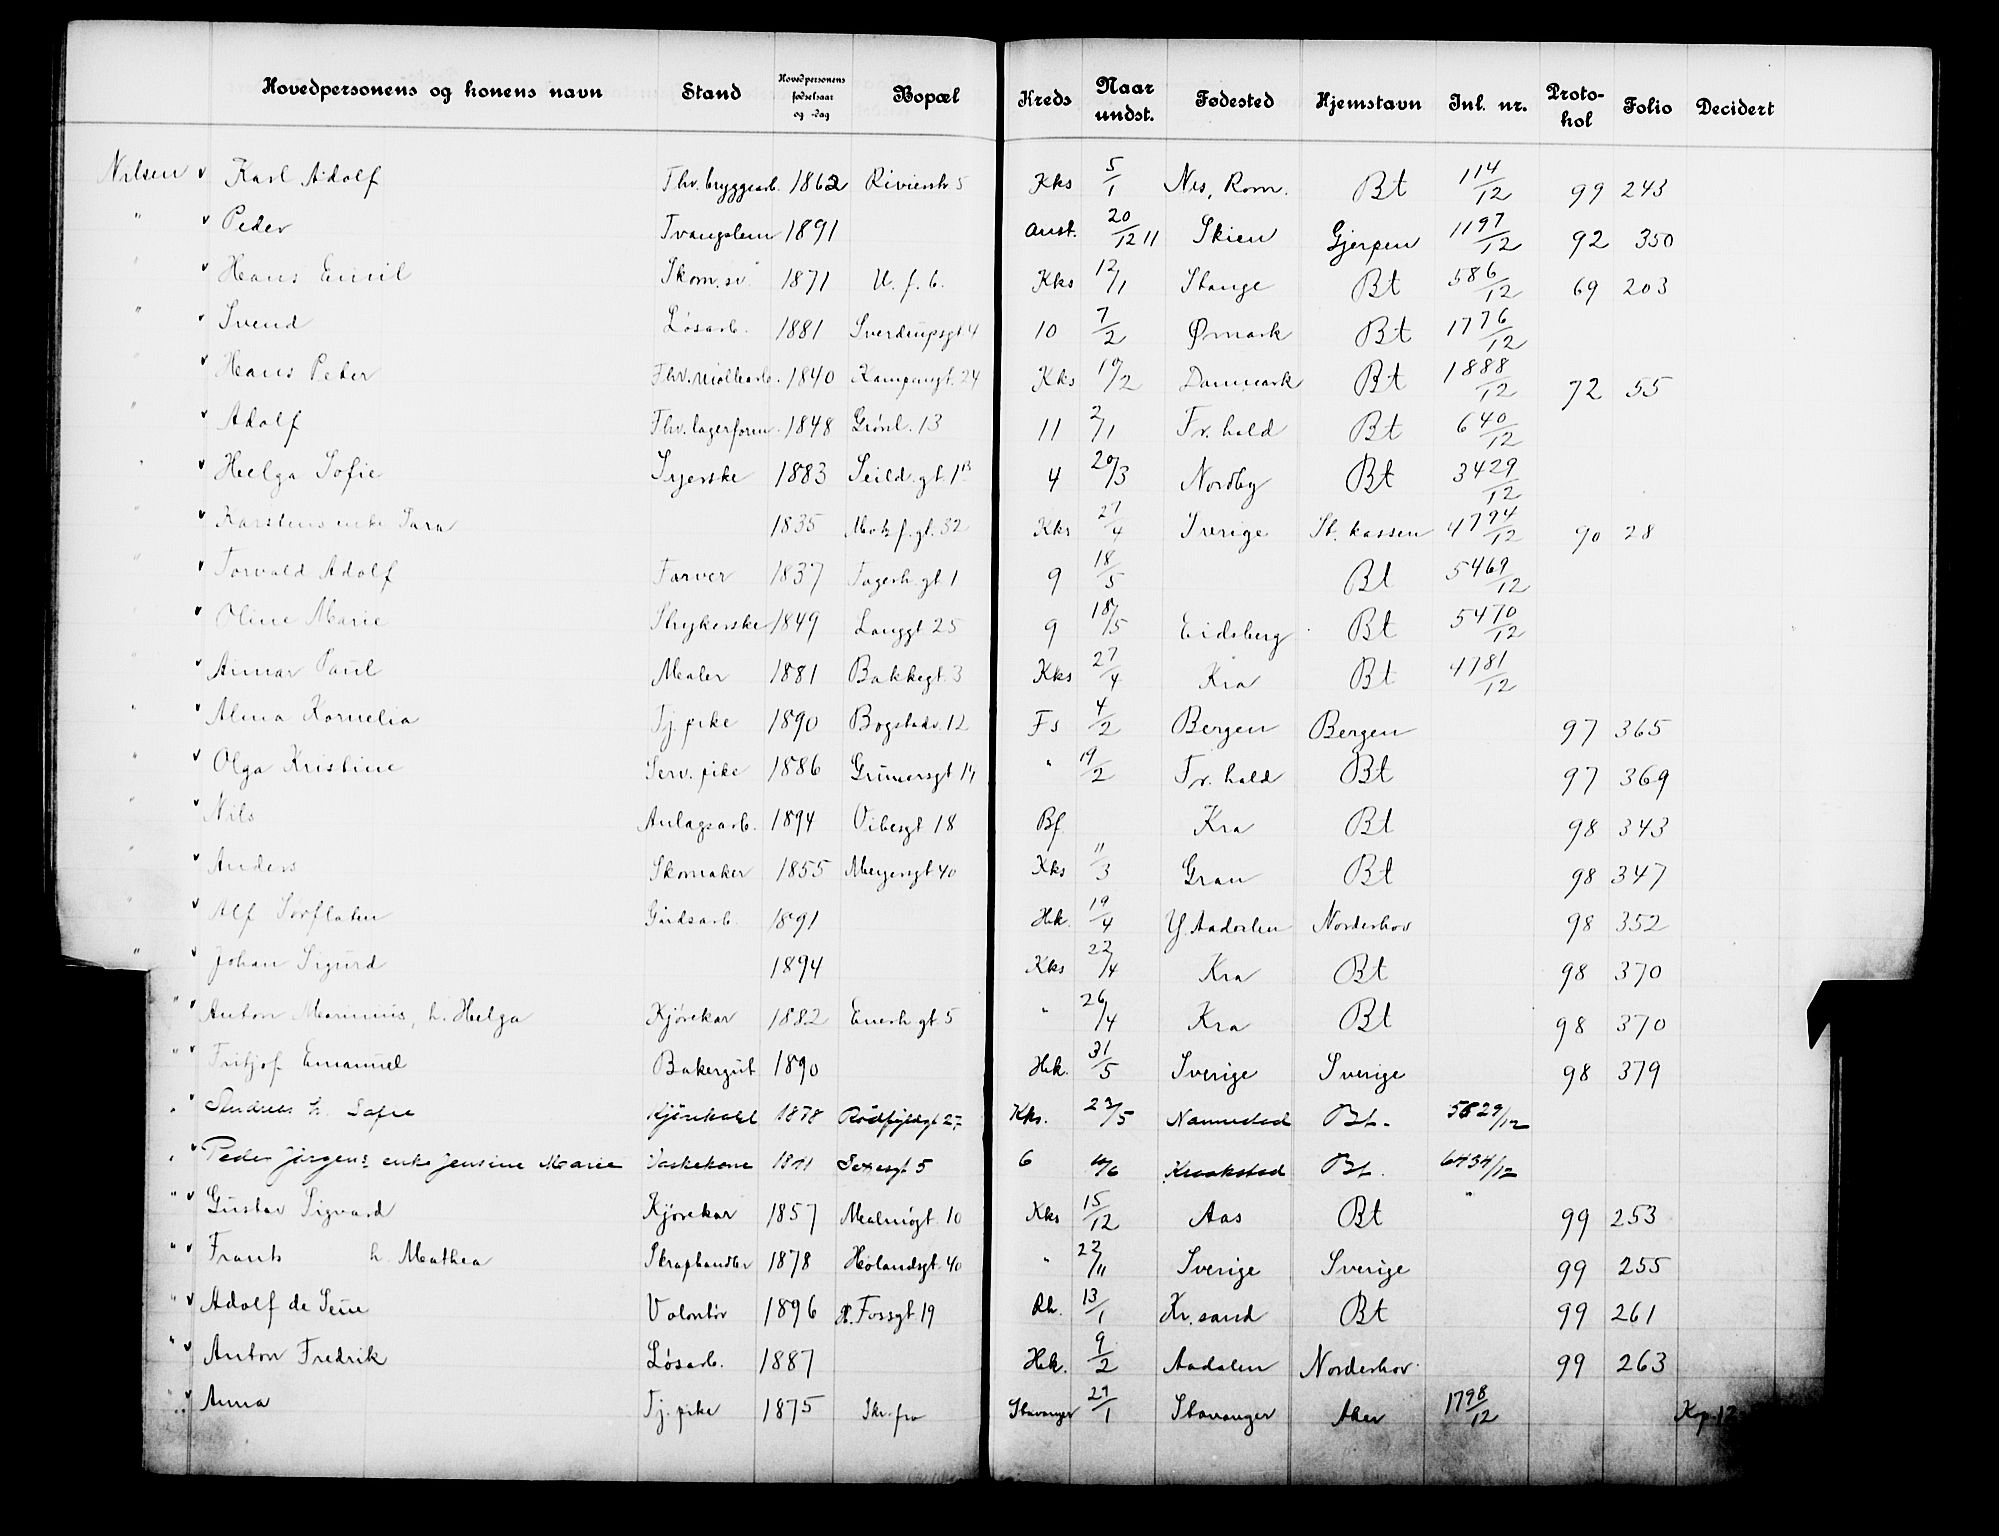 Hovedpersonens og konens navn Stand Hovedpersonens fødselsaar og -dag Bopæl Kreds Naar undst. Fødested Hjemstavn Inl. nr. Protokol Folio Decidert
Nilsen v Karl Adolf Fhv. bryggearb. 1862 Rivierstr 5 Kks 5/1 Nes, Rom. Bt 114/12 99 243
" v Peder Tvangslem 1891 Anst. 20/12 11 Skien Gjerpen 1197/12 92 350
" v Hans Emil Skom.sv. 1871 U. f. b. Kks 12/1 Stange Bt 586/12 69 203
" v Svend Løsarb. 1881 Sverdrupsgt 4 10 7/2 Ømark Bt 1776/12
" v Hans Peder Fhv. møllearb. 1840 Kampengt. 24 Kks 10/2 Danmark Bt 1888/12 72 55
" v Adolf Fhv. lagerform. 1848 Grønl. 13 11 2/1 Fr. hald Bt 640/12
" v Helga Sofie Syerske 1883 Seild. gt 1B 4 20/3 Nordby Bt 3429/12
" v Karstens enke Sara 1835 Motzf. gt. 32 Kks 27/4 Sverige St. kassen 4794/12 90 28
" v Torvald Adolf Farver 1837 Fagerh. gt 1 9 18/5 Bt 5469/12
" v Oline Marie Strykerske 1849 Langgt 25 9 18/5 Eidsberg Bt 5470/12
" v Annar Paul Maler 1881 Bakkegt. 3 Kks 27/4 Kra Bt 4781/12
" v Alma Kornelia Tj. pike 1890 Bogstadv. 12 Fs 4/2 Bergen Bergen 97 365
" v Olga Kristine Serv. pike 1886 Grünersgt 14 " 19/2 Fr. hald Bt 97 369
" v Nils Anlagsarb. 1894 Vibesgt 18 Bf Kra Bt 98 343
" v Anders Skomaker 1855 Meyersgt 40 Kks 11/3 Gran Bt 98 347
" v Alf Sørflaten Gårdsarb. 1891 Hek. 19/4 Y. Aadalen Norderhov 98 352
" v Johan Sigurd 1894 Kks 22/4 Kra Bt 98 370
" v Anton Marinius, h. Helga Kjørekar 1882 Enerh. gt 5 " 26/4 Kra Bt 98 370
" v Fritjof Emanuel Bakergut 1890 Hek. 31/5 Sverige Sverige 98 379
" v Andreas h. Sofie Kjørekarl 1878 Rødfyldgt Kks. 23/5 Nannestad Bt. 5829/12
" v Peder Jørgens enke Jensine Marie Vaskekone Sexesgt 5 6 Kraakstad Bt. 6434/12
" v Gustav Sigvard Kjørekar 1857 Malmøgt. 10 Kks 15/12 Aas Bt " 99 253
" v Frants h. Mathea Skraphandler 1878 Hølandsgt. 40 " 22/11 Sverige Sverige 99 255
" v Adolf de Seue Volontør 1896 H. Fossgt 19 Rh. 13/1 Kr. sand Bt 99 261
" v Anton Fredrik Løsarb. 1887 Hek. 9/2 Aadalen Norderhov 99 263
" v Anna Tj. pike 1875 Skr. fra Stavanger 29/1 Stavanger Aker 1798/12 Kop. 12